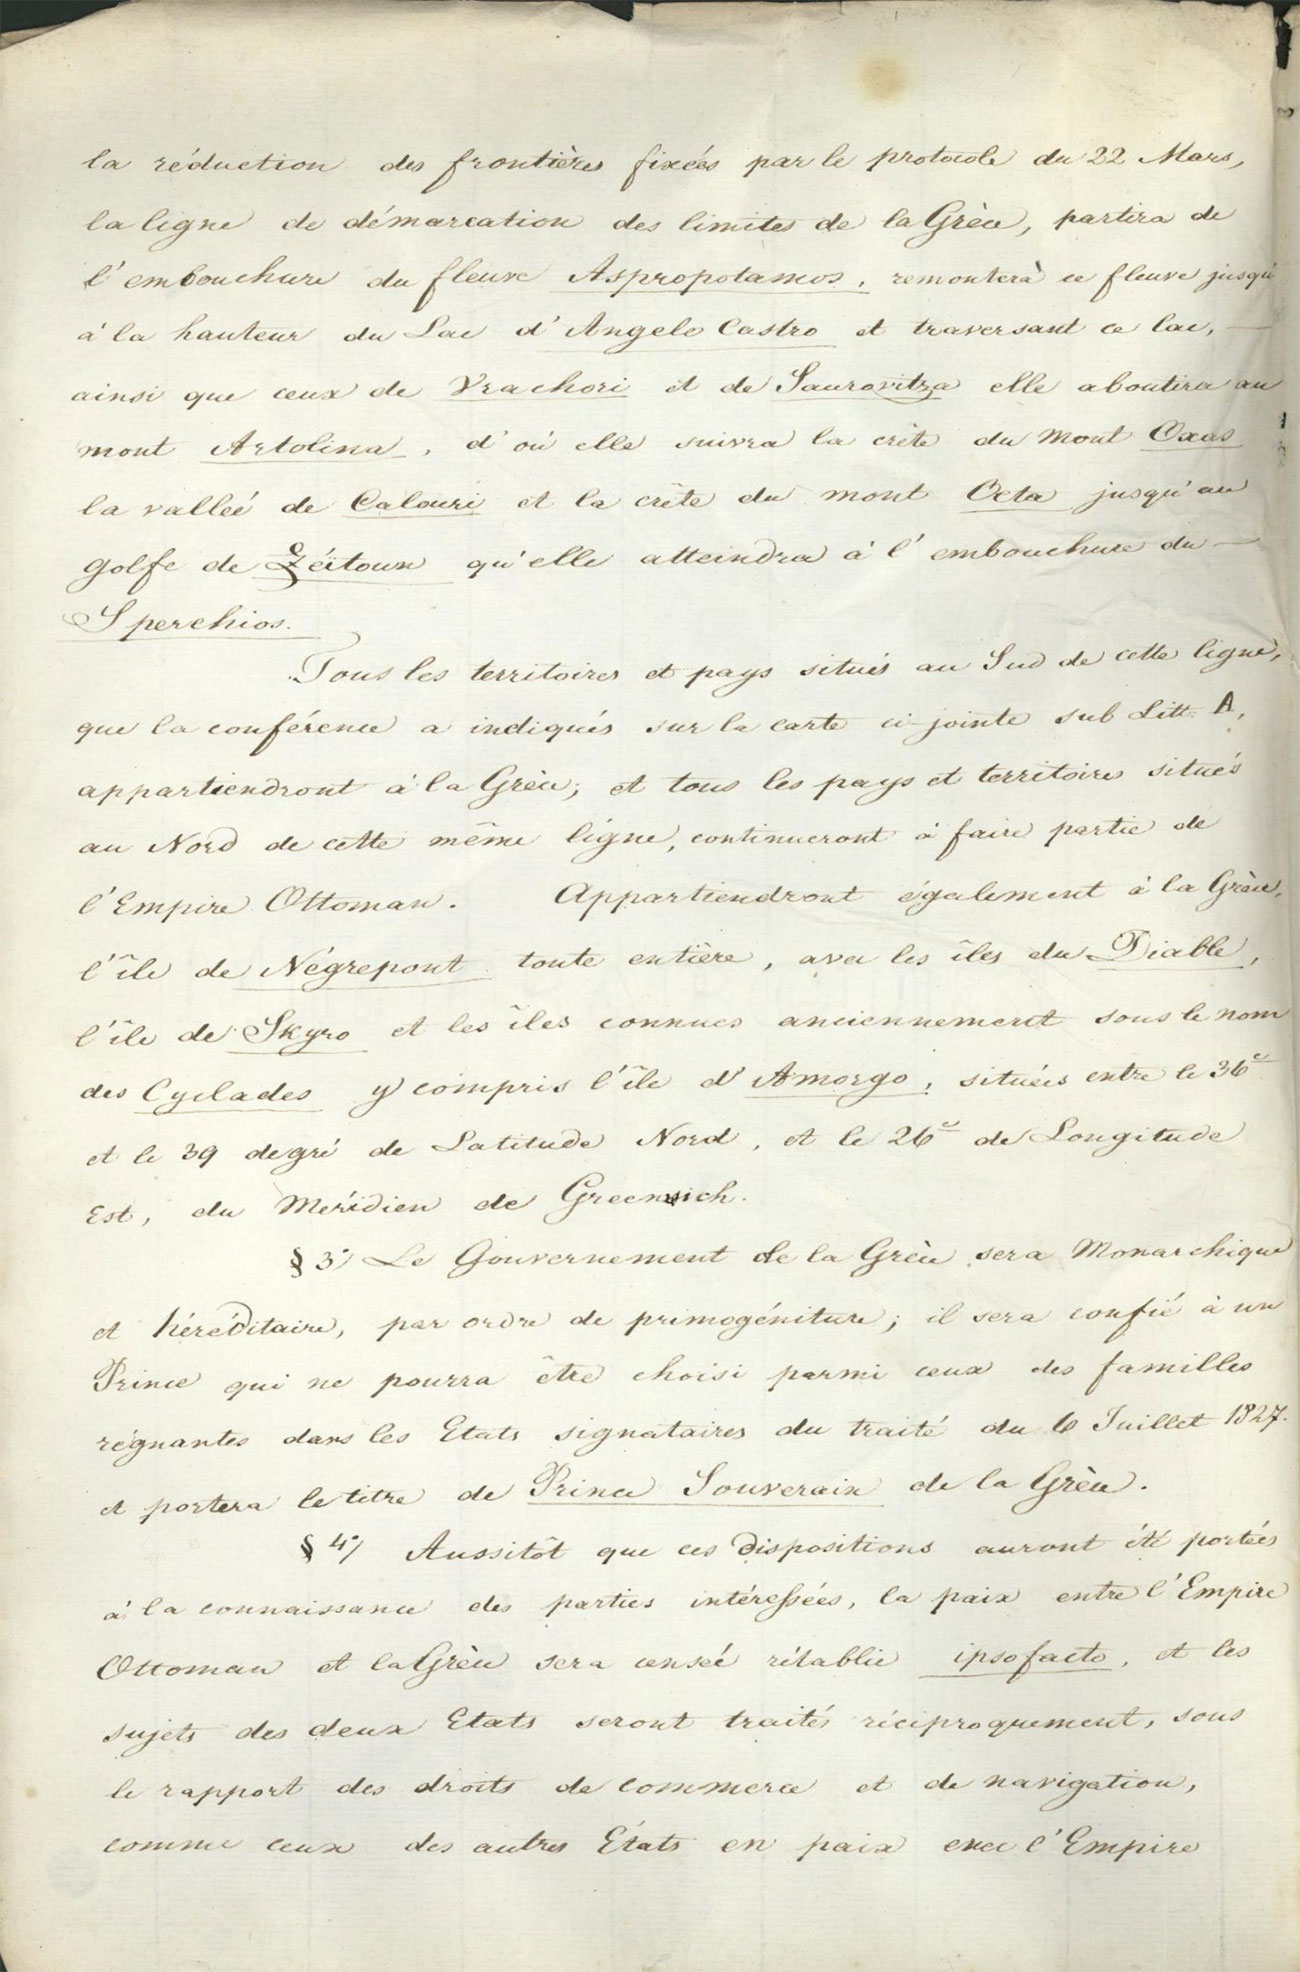 la réduction des frontières fixées par le protocole du 22 Mars,
la ligne de démarcation des limites de la Grèce, partira de
l'embouchure du fleuve Aspropotamos, remontera ce fleuve jusqu'
à la hauteur du Lac d'Angelo Castro et traversant ce lac, —
ainsi que ceux de Vrachori et de Saurovitza elle aboutira au
mont Artolina, d'où elle suivra la crête du Mont Oxas
la vallée de Calouri et la crête du mont Oeta jusqu'au
golfe de Zéitoun qu'elle atteindra à l'embouchure du —
Sperchios.
Tous les territoires et pays situés au Sud de cette ligne,
que la conférence a indiqués sur la carte ci-jointe sub Litt. A,
appartiendront à la Grèce; et tous les pays et territoires situés
au Nord de cette même ligne, continueront à faire partie de
l'Empire Ottoman. Appartiendront également à la Grèce,
l'île de Négrepont toute entière, avec les îles du Diable,
l'île de Skyro et les îles connues anciennement sous le nom
des Cyclades y compris l'île d'Amorgo, situées entre le 36e
et le 39 degré de Latitude Nord, et le 26e de Longitude
Est, du Méridien de Greenwich.
§ 3) Le Gouvernement de la Grèce sera Monarchique
et héréditaire, par ordre de primogéniture; il sera confié à un
Prince qui ne pourra être choisi parmi ceux des familles
régnantes dans les Etats signataires du traité du 6 Juillet 1827.
et portera le titre de Prince Souverain de la Grèce.
§ 4) Aussitôt que ces dispositions auront été portées
à la connaissance des parties intéressées, la paix entre l'Empire
Ottoman et la Grèce sera censée rétablie ipso facto, et les
sujets des deux Etats seront traités réciproquement, sous
le rapport des droits de commerce et de navigation,
comme ceux des autres États en paix avec l'Empire